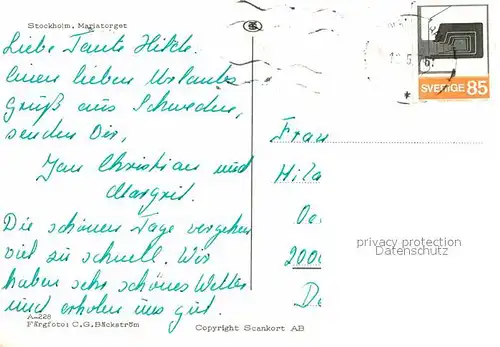 Stockholm, Mariatorget
Liebe Tante Hilde.
Einen lieben Urlaubs
Gruß aus Schweden,
senden Dir,
Jan Christian und
Margrit.
Die schönen Tage vergehen
viel zu schnell. Wir
haben sehr schönes Wetter
und erholen uns gut.
A-228
Färgfoto: C.G. Bäckström
Copyright Scankort AB
SVERIGE 85
Frau
Hila
2000
privacy protection
Datenschutz